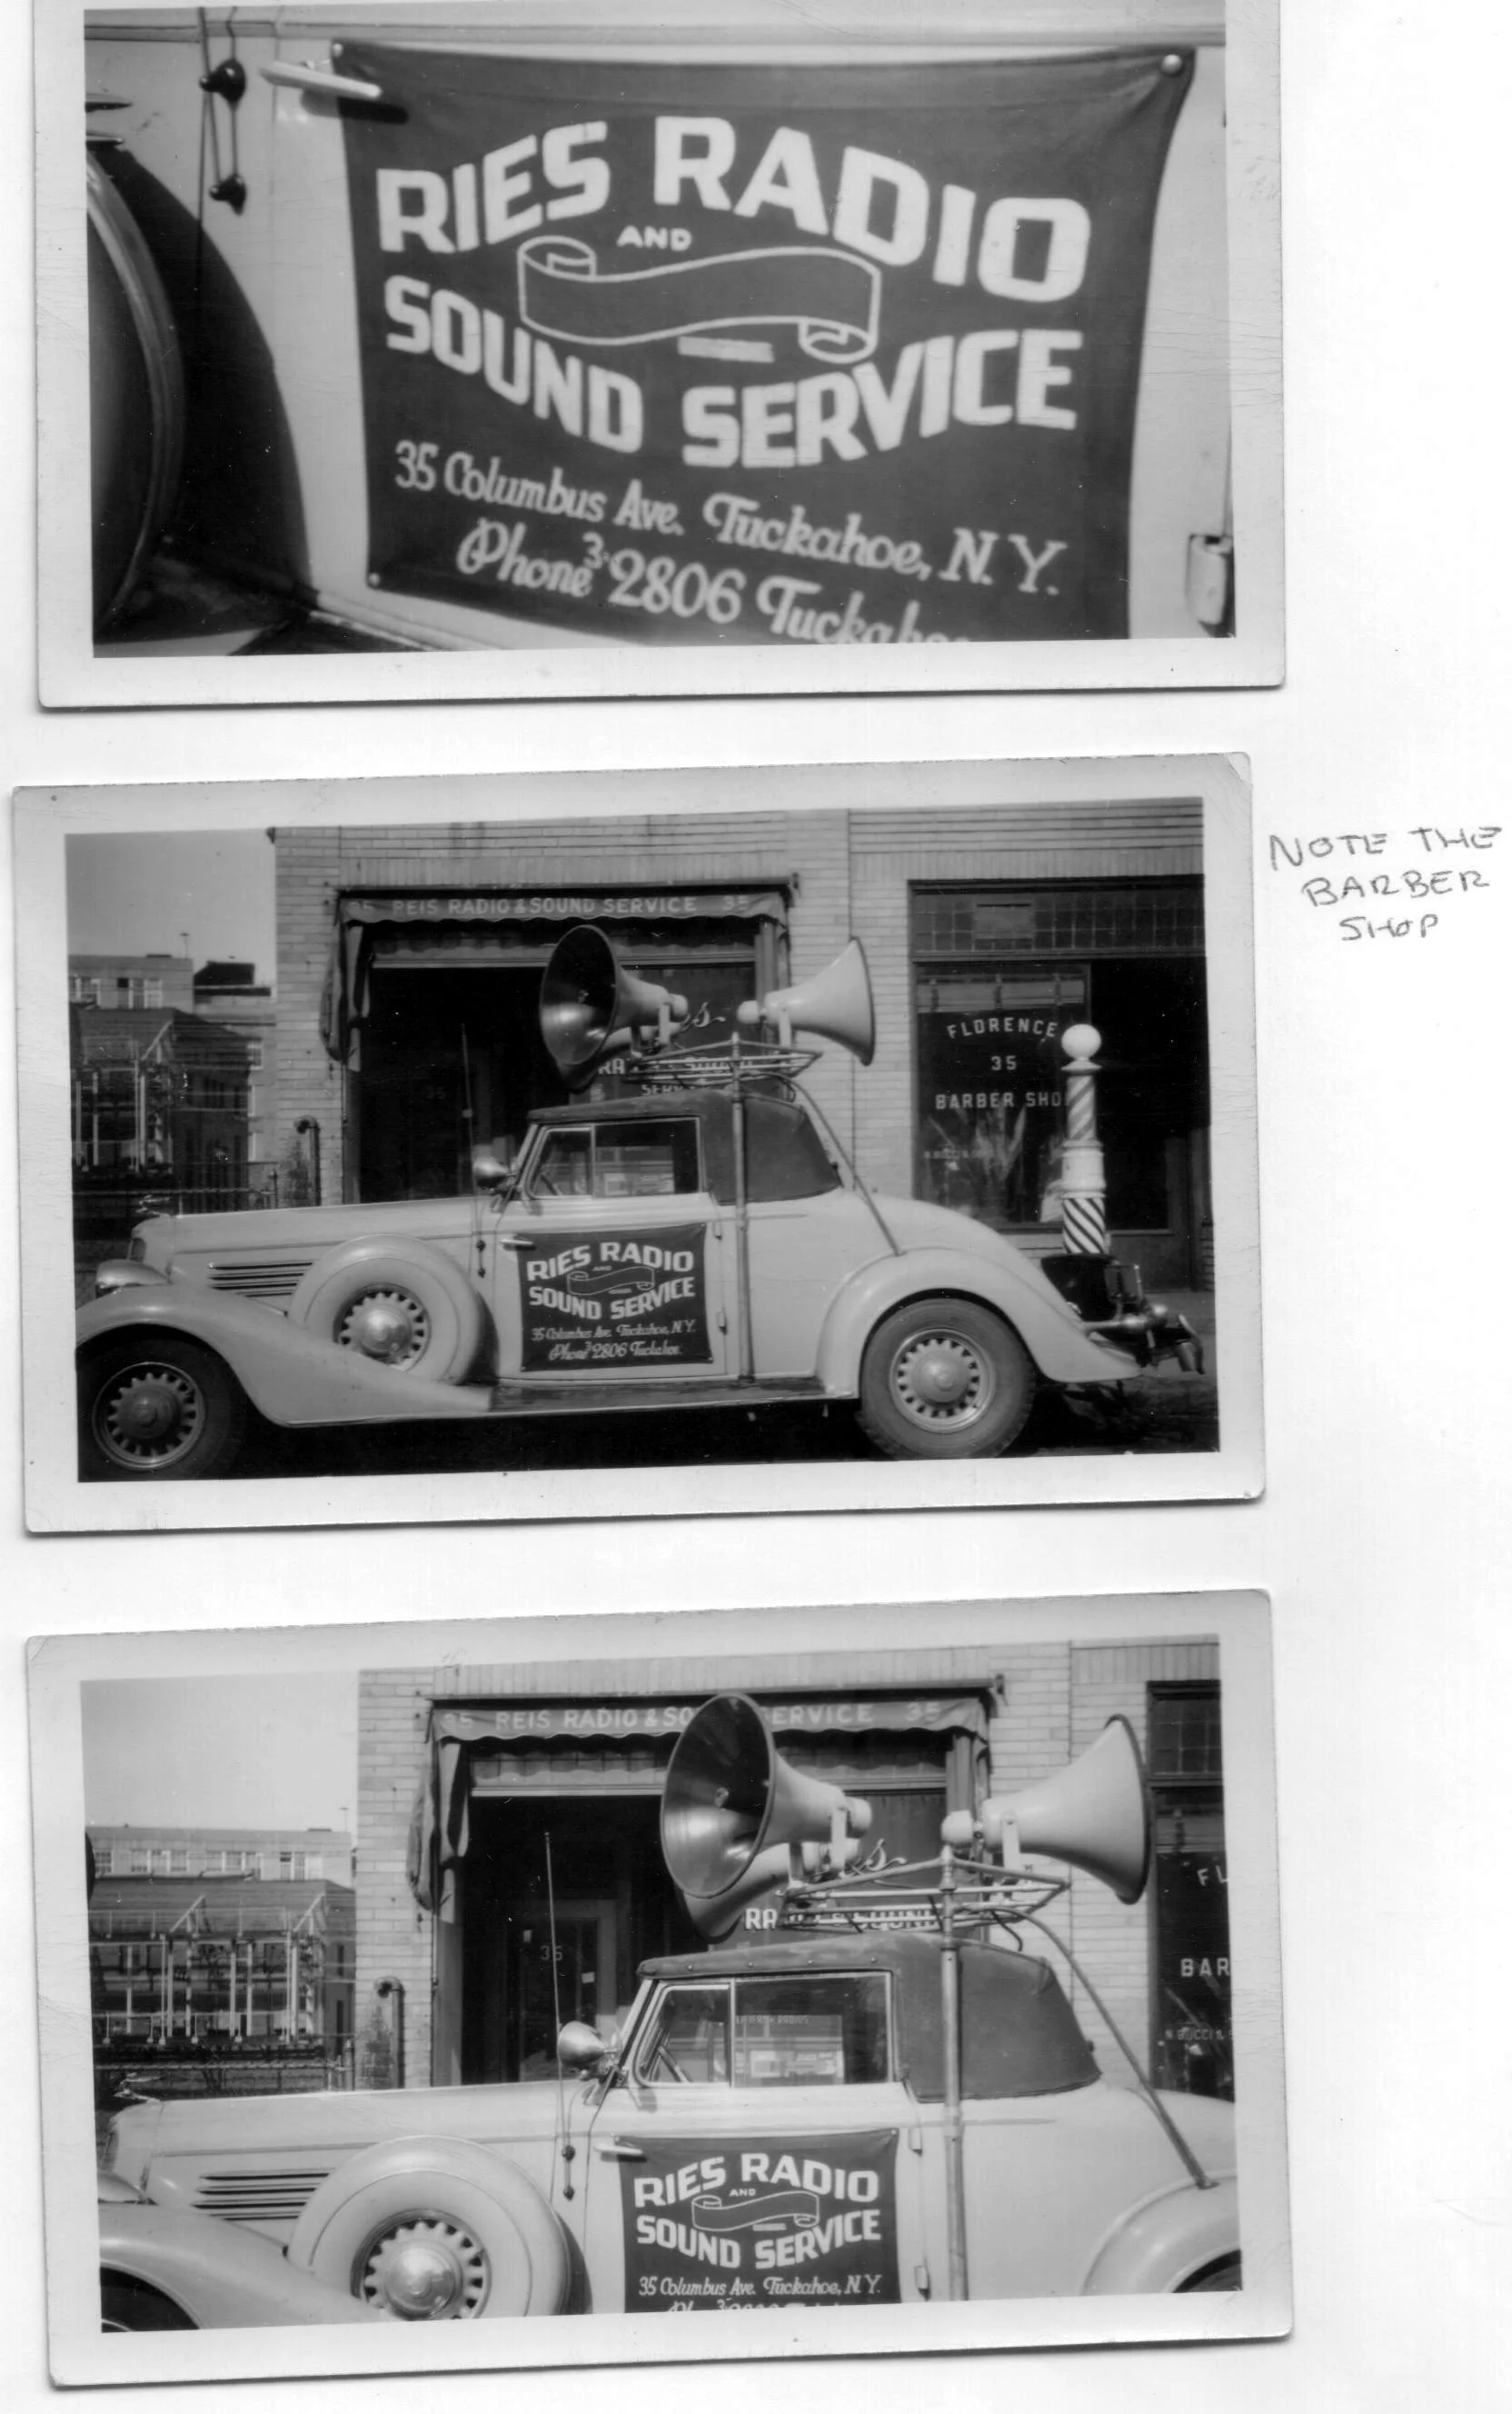 RIES RADIO
AND
SOUND SERVICE
35 Columbus Ave. Tuckahoe, N.Y.
Phone 3-2806 Tuckahoe
NOTE THE
BARBER
SHOP
35 REIS RADIO & SOUND SERVICE 35
FLORENCE
35
BARBER SHO
35
RIES RADIO
AND
SOUND SERVICE
35 Columbus Ave. Tuckahoe, N.Y.
Phone 3-2806 Tuckahoe
35 REIS RADIO & SO ERVICE 35
FL
35
BAR
N. BUCCI &
RIES RADIO
AND
SOUND SERVICE
35 Columbus Ave. Tuckahoe, N.Y.